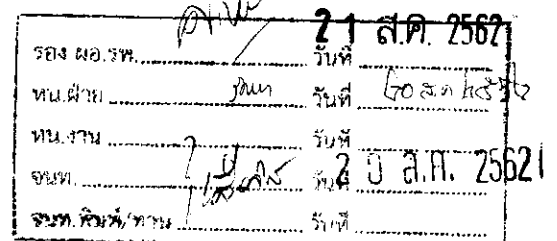 รอง ผอ.รพ. วันที่ 21 ส.ค. 2562
หน.ฝ่าย วันที่ 20 ส.ค.
หน.งาน วันที่
จนท. วันที่ 20 ส.ค. 2562
จนท.พิมพ์/ทาน วันที่